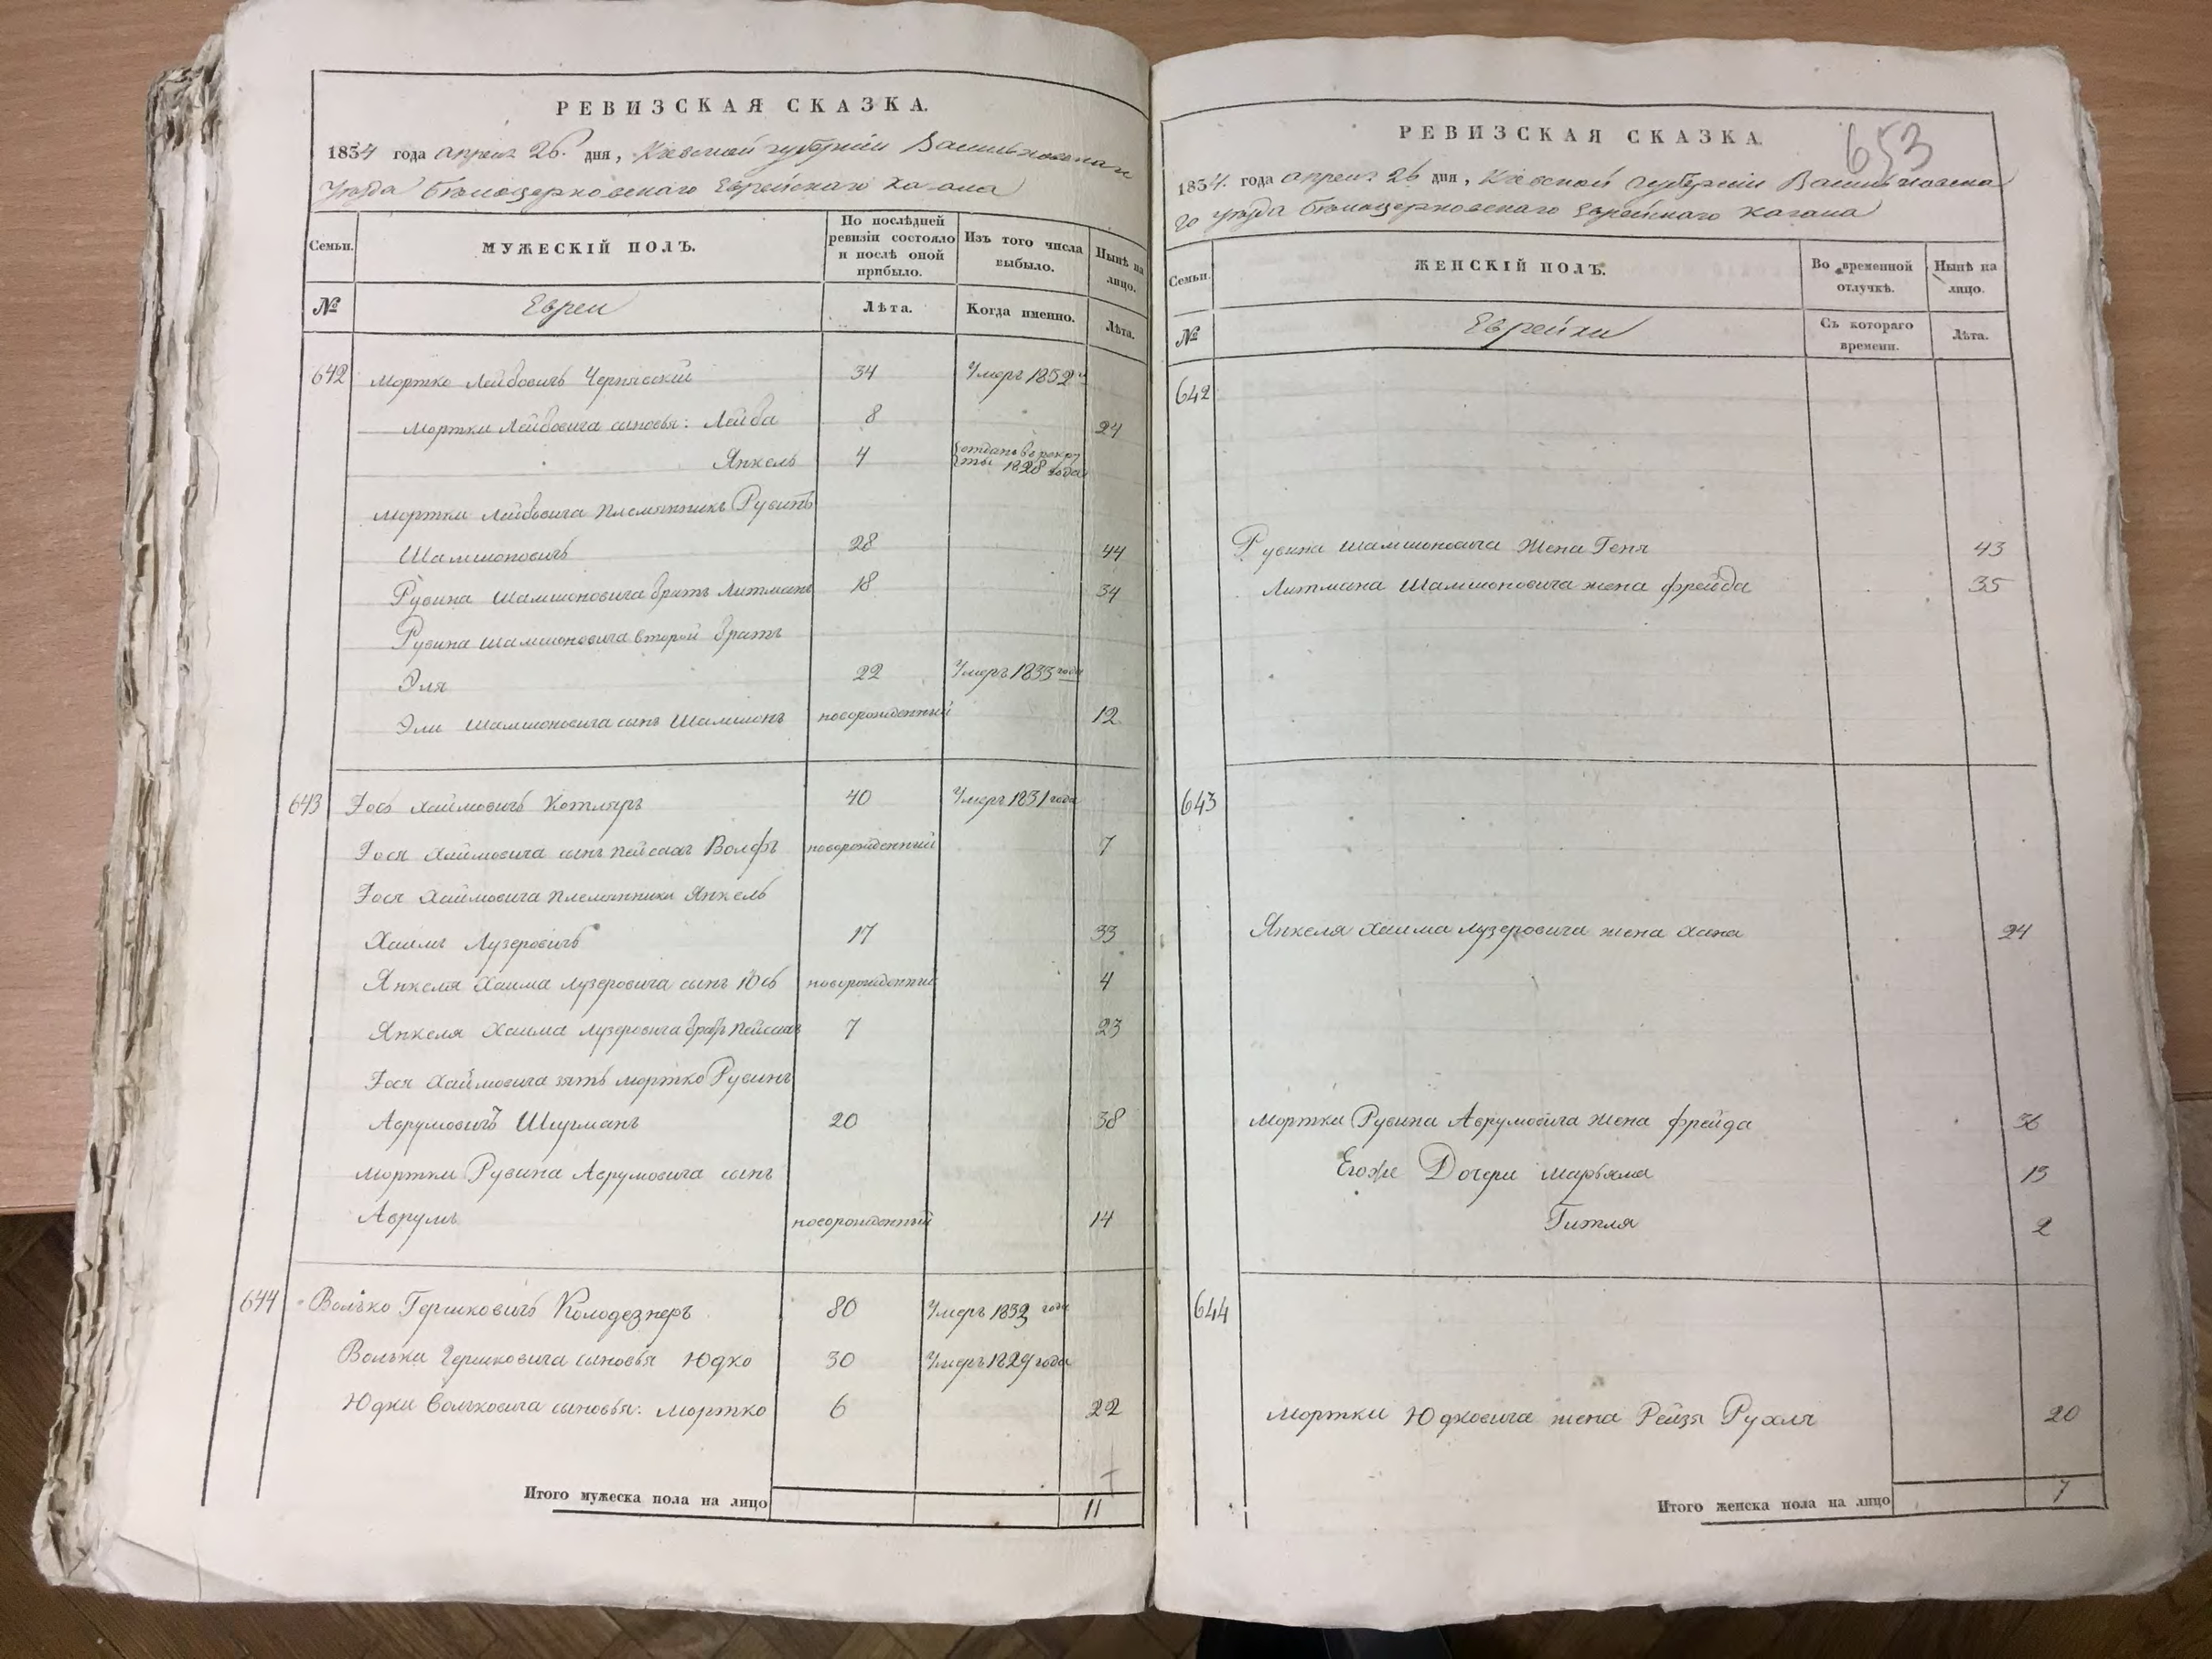 РЕВИЗСКАЯ СКАЗКА.
1834 года апреля 26. дня, Кіевской губерніи Васильковскаго
уѣзда бѣлоцерковскаго Еврейскаго кагала
Семьи.
МУЖЕСКІЙ ПОЛЪ.
По послѣдней ревизіи состояло и послѣ оной прибыло.
Изъ того числа выбыло.
Нынѣ на лицо.
№
Евреи
Лѣта.
Когда именно.
Лѣта.
642 Мортко Лейбовичъ Чернявскій 34 Умеръ 1832
Мортки Лейбовича сыновья: Лейба 8 24
Янкель 4 отданъ в рекруты 1828 года
Мортки Лейбовича племянникъ Рувинъ
Шамшоновичъ 28 44
Рувина Шамшоновича братъ Литманъ 18 34
Рувина Шамшоновича второй братъ
Эля 22 Умеръ 1833 года
Эли Шамшоновича сынъ Шамшонъ новорожденный 12
643 Іось Хаимовичъ Котляръ 40 Умеръ 1831 года
Іося Хаймовича сынъ Пейсахъ Волфъ новорожденный 7
Іося Хаймовича племянники Янкель
Хаимъ Лузеровичъ 17 33
Янкеля Хаима Лузеровича сынъ Юсь новорожденный 4
Янкеля Хаима Лузеровича братъ Пейсахъ 7 23
Іося Хаймовича зять Мортко Рувинъ
Аврумовичъ 20 38
Мортки Рувина Аврумовича сынъ
Аврумъ новорожденный 14
644 Волько Гершковичъ Колодезнеръ 80 Умеръ 1832 года
Вольки Гершковича сыновья Юдко 30 Умеръ 1829 года
Юдки Вольковича сыновья: Мортко 6 22
Итого мужеска пола на лицо 11
653
РЕВИЗСКАЯ СКАЗКА.
1834. года апреля 26 дня, Кіевской губерніи Васильковска
го уѣзда бѣлоцерковскаго Еврейскаго кагала
Семьи.
ЖЕНСКІЙ ПОЛЪ.
Во временной отлучкѣ.
Нынѣ на лицо.
№
Еврейки
Съ котораго времени.
Лѣта.
642
Рувина Шамшоновича жена Геня 43
Литмана Шамшоновича жена Фрейда 35
643
Янкеля Хаима Лузеровича жена Хана 24
Мортки Рувина Аврумовича жена Фрейда 36
Егоже Дочери Марьяма 13
Гитля 2
644
Мортки Юдковича жена Рейзя Рухля 20
Итого женска пола на лицо 7